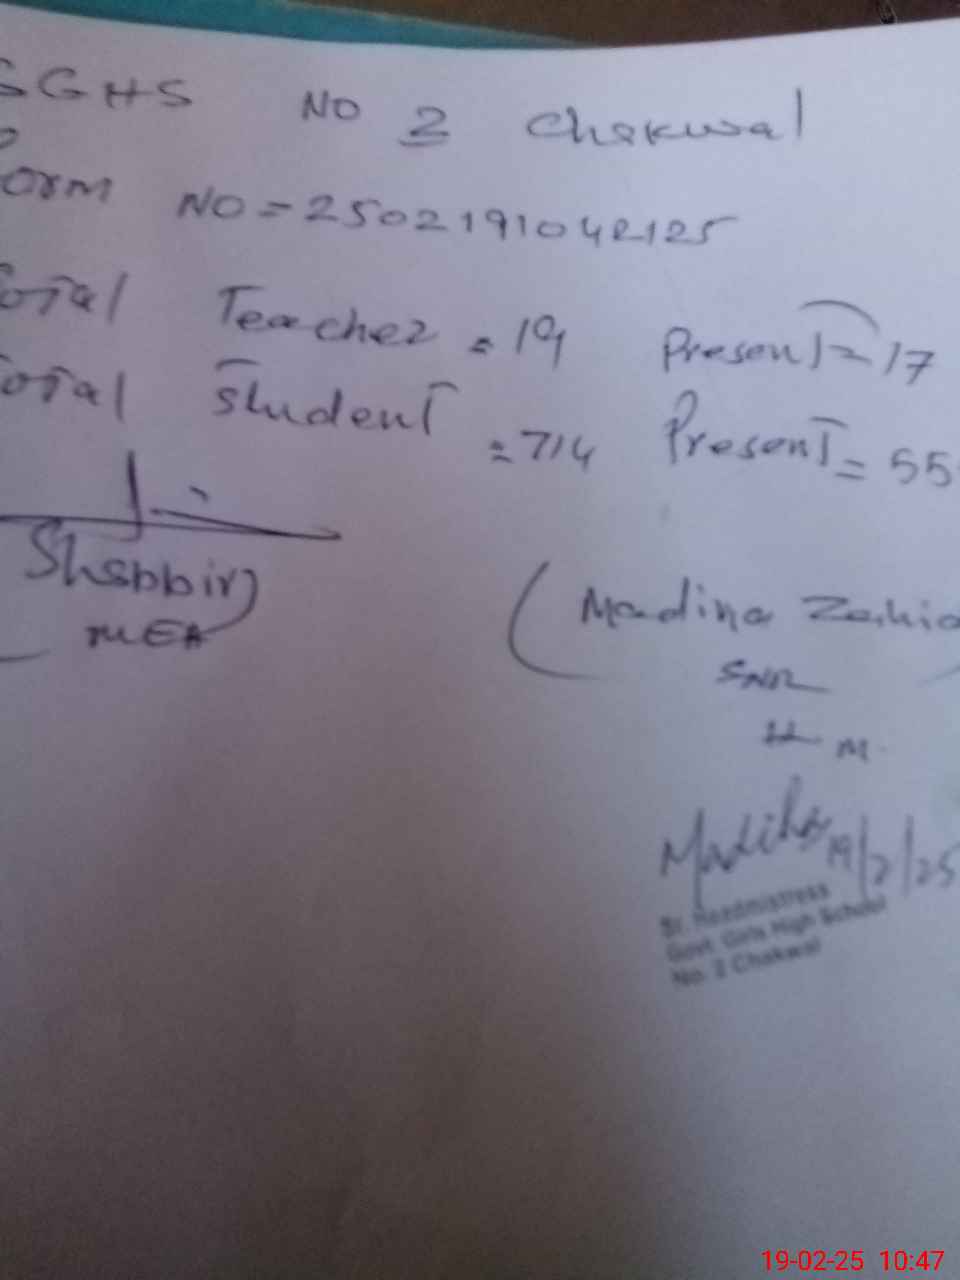 GGHS No 2 Chakwal
Form No = 2502191042125
Total Teacher = 19 Present = 17
Total Student = 714 Present = 55
Shabbir)
MEA
(Madiha Zahid
SNR
H M.
Madiha 19/2/25
Sr. Headmistress
Govt. Girls High School
No. 2 Chakwal
19-02-25 10:47